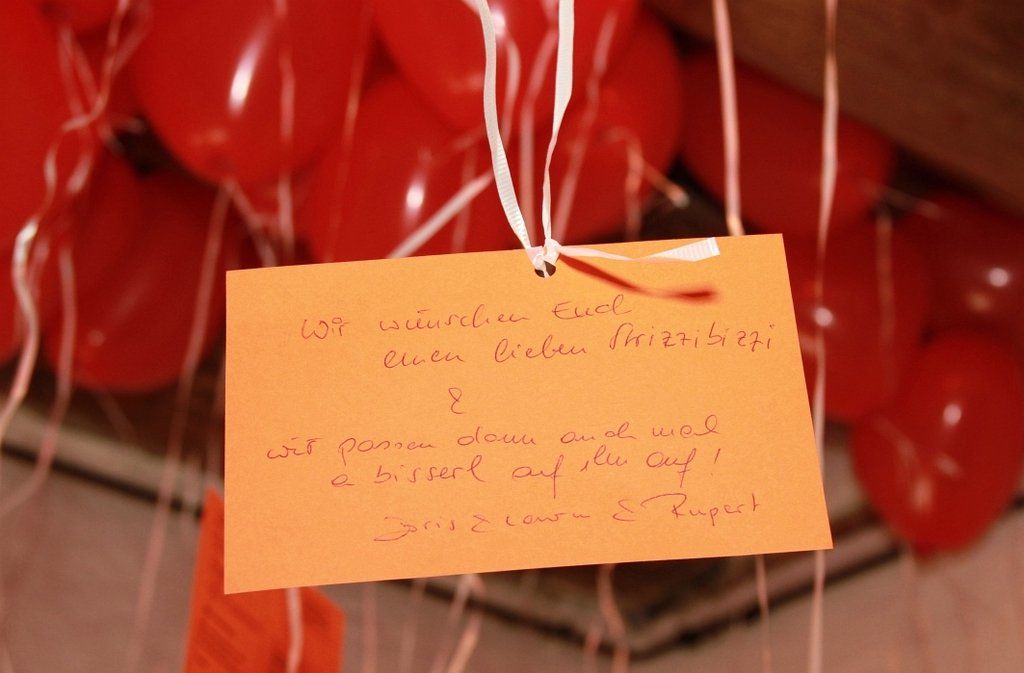 Wir wünschen Euch
einen lieben Strizzibizzi
&
wir passen dann auch mal
a bisserl auf ihn auf!
Doris & & Rupert